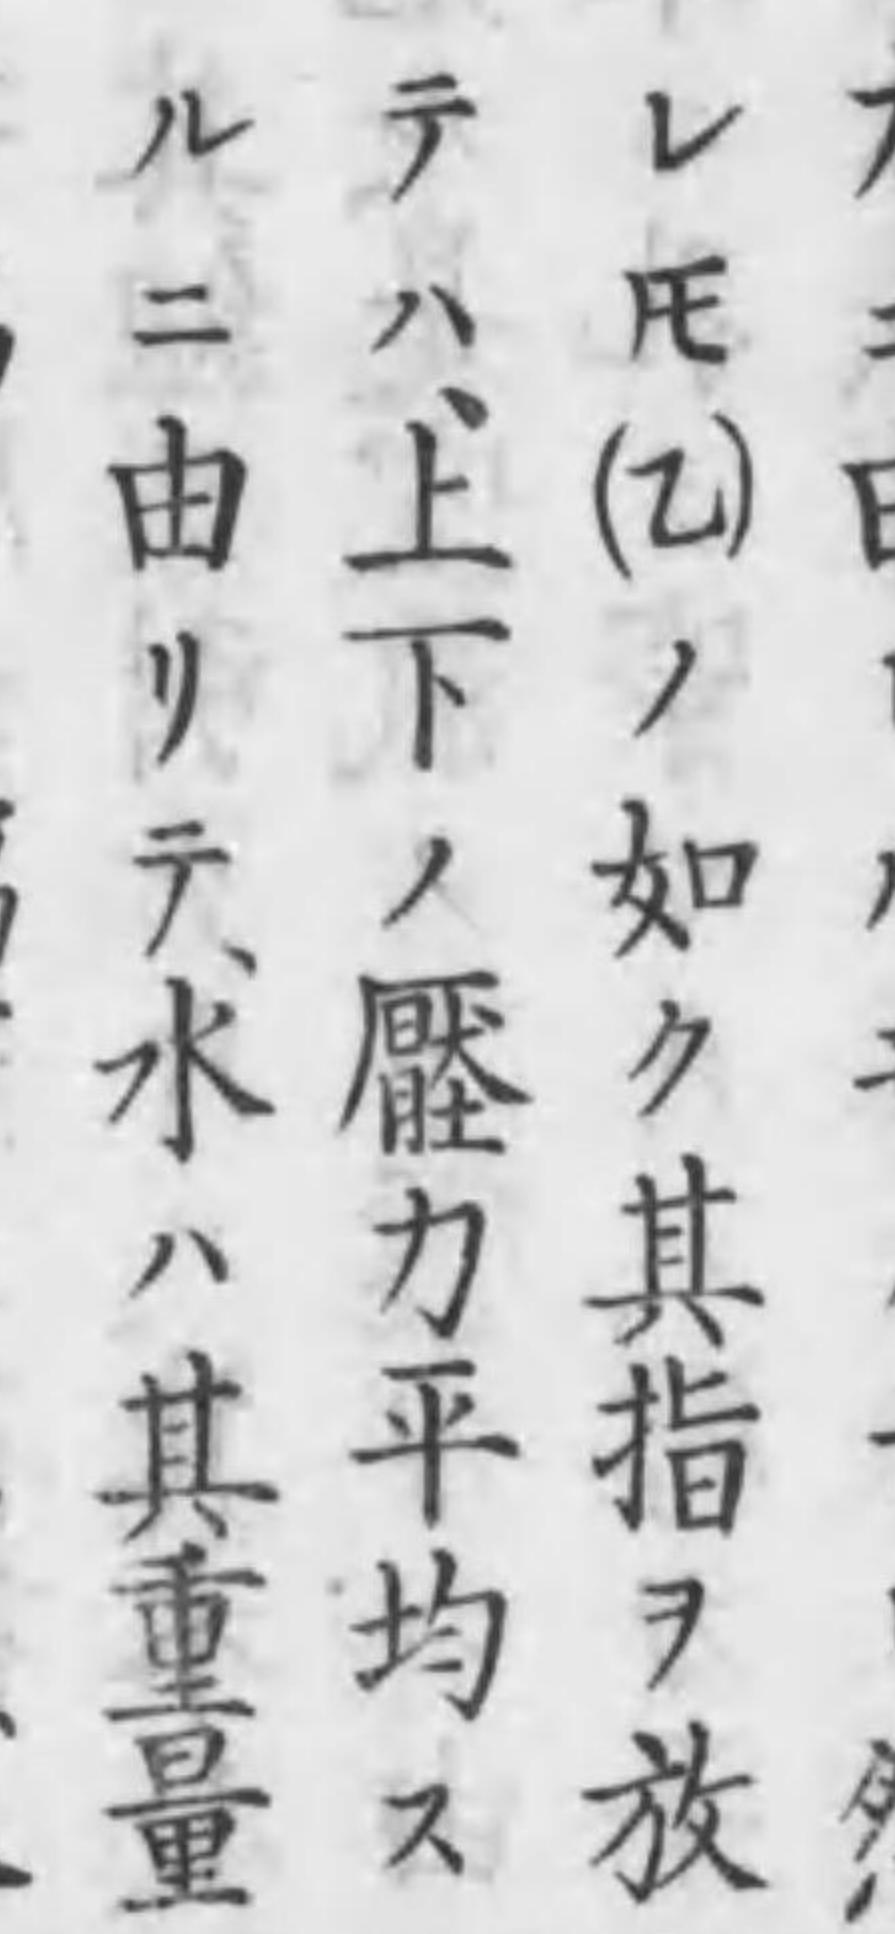 レ𪜈(乙)ノ如ク其指ヲ放
テハ、上下ノ壓力平均ス
ルニ由リテ、水ハ其重量